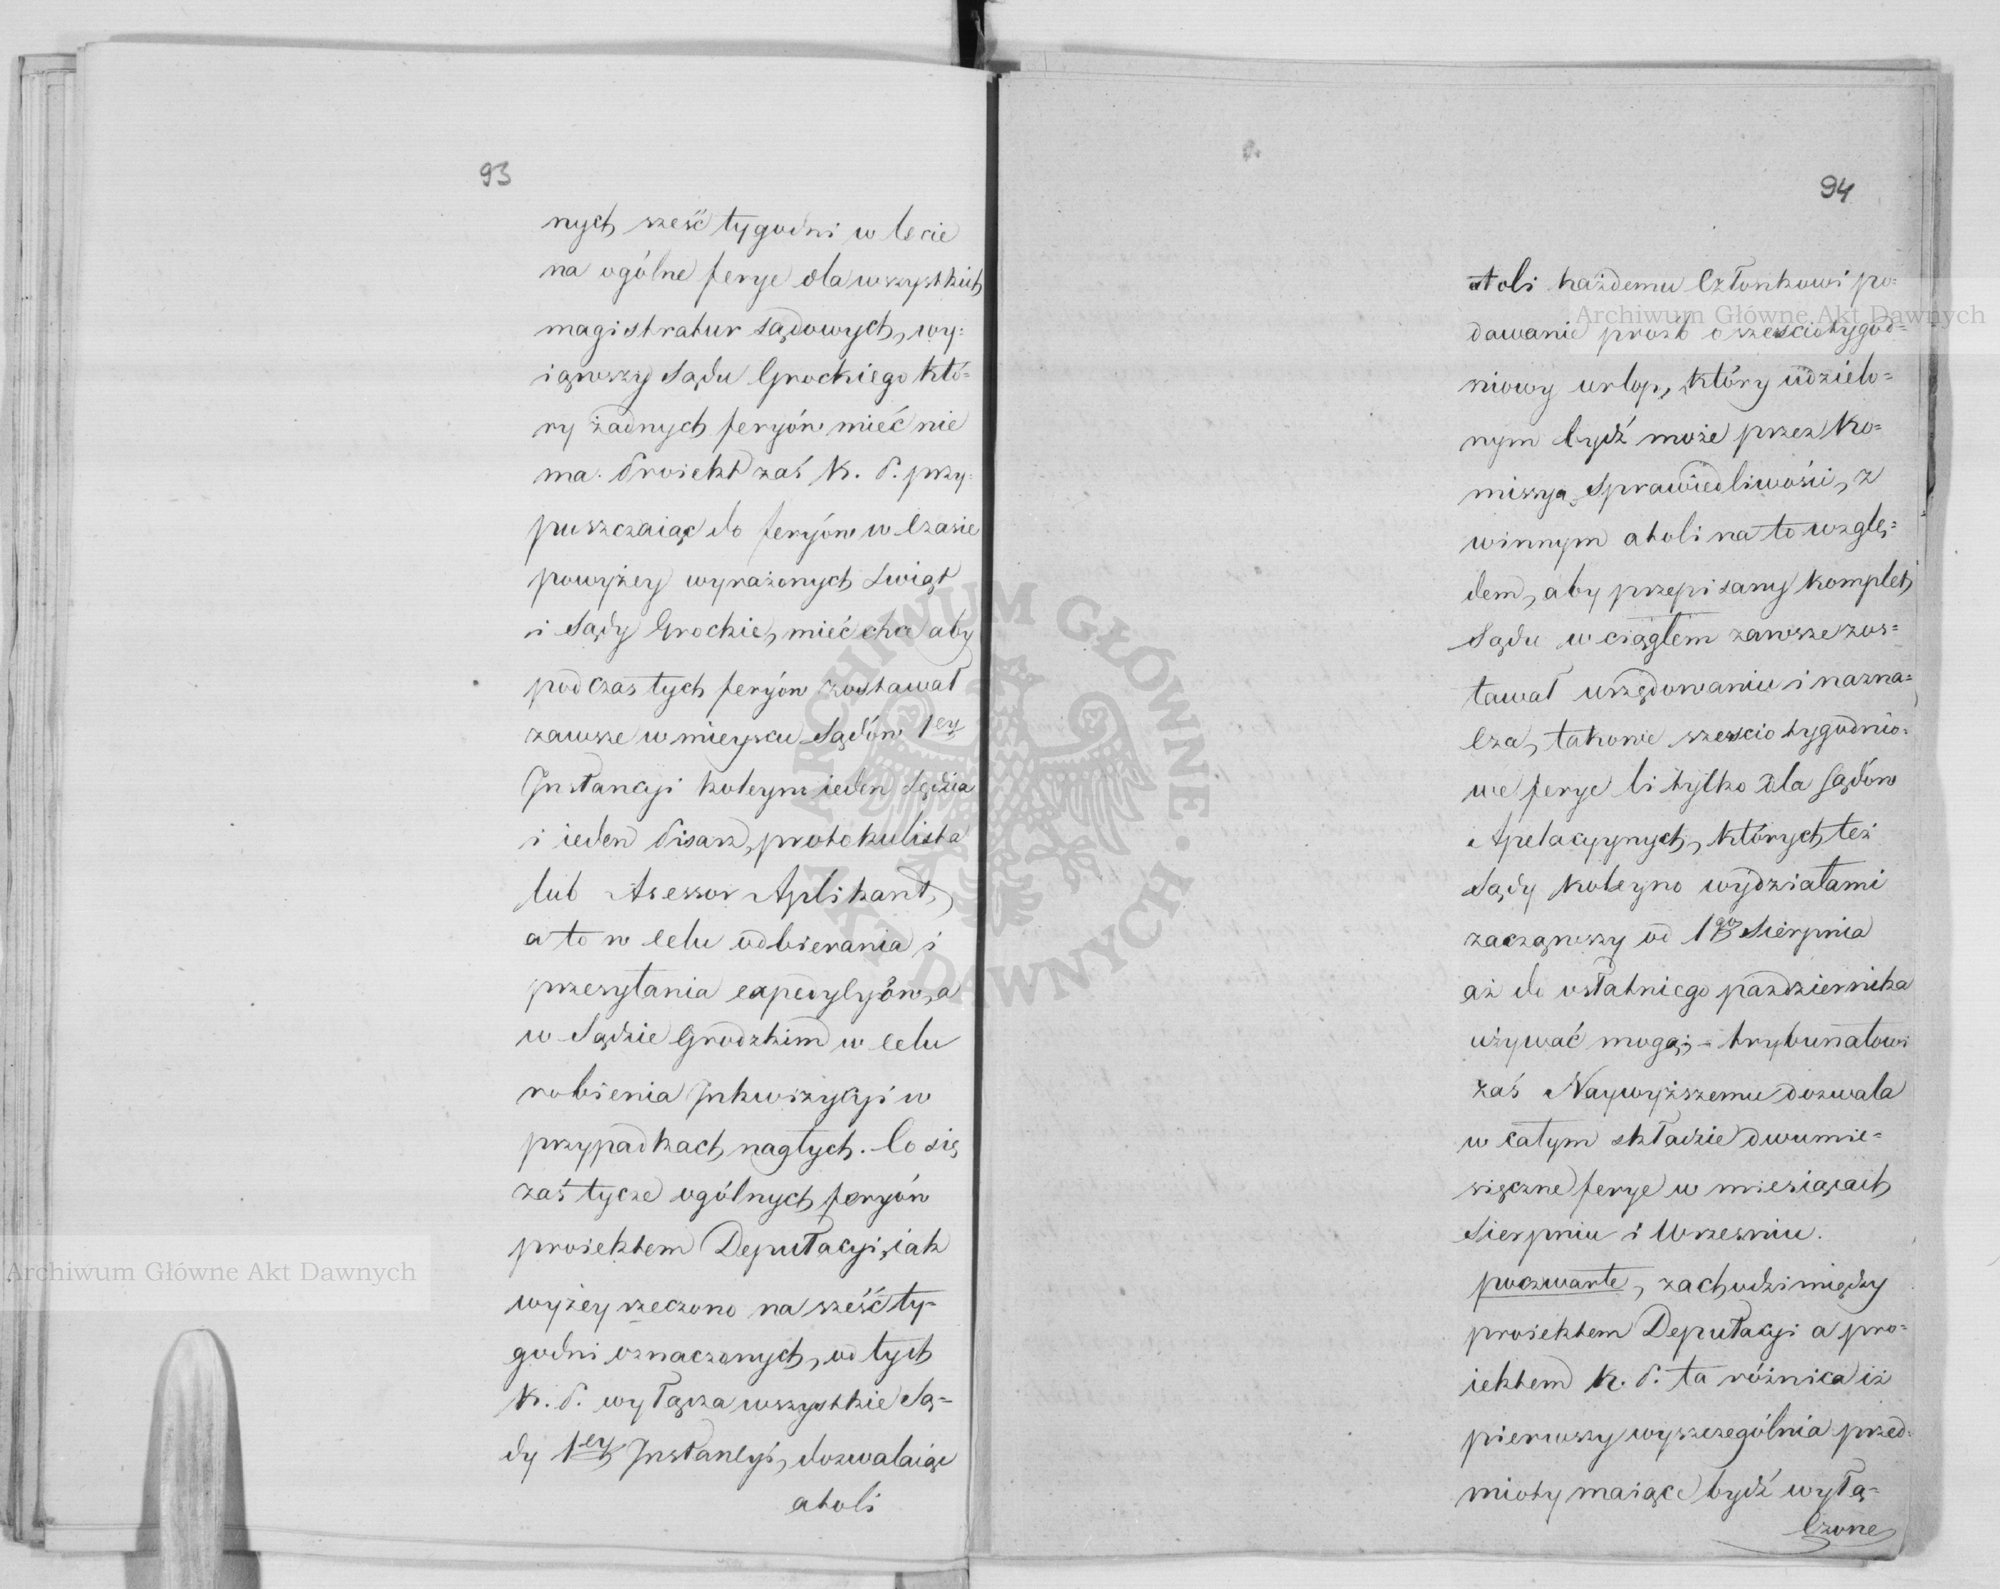 93
nych sześć tygodni w lecie
na ogólne ferye dla wszystkich
magistratur sądowych, wy=
iąwszy Sądu Grockiego któ=
ry żadnych feryów mieć nie
ma. Proiekt zaś K. P. przy=
puszczaiąc do feryów w czasie
powyżey wyrażonych Swiąt
i Sądy Grockie, mieć chce aby
podczas tych feryów zostawał
zawsze w mieyscu Sądów 1ey
Instancyi koleym ieden Sędzia
i ieden Pisarz, protokulista
lub Asessor Aplikant,
a to w celu odbierania i
przesyłania expedycyów, a
w Sądzie Grodzkim w celu
robienia Inkwizycyi w
przypadkach nagłych. Co się
zaś tycze ogólnych feryów
proiektem Deputacyi, iak
wyżey rzeczono na sześć ty=
godni oznaczonych, od tych
K. P. wyłącza wszystkie Są=
dy 1ey Instancyi, dozwalaiąc
atoli
94
atoli każdemu Członkowi po=
dawanie prozb o szesciotygod=
niowy urlop, który udzielo=
nym bydź może przez Ko=
missyą Sprawiedliwości, z
winnym atoli na to wzglę=
dem, aby przepisany komplet
Sądu w ciągłem zawsze zos=
tawał urzędowaniu i nazna=
cza, takowe szescio tygodnio=
we ferye li tylko dla Sądów
Apelacyynych, których też
Sądy koleyno wydziałami
zacząwszy od 1go Sierpnia
aż do ostatniego pazdziernika
używać mogą; – trybunałowi
zaś Naywyższemu dozwala
w całym składzie dwumie=
sięczne ferye w miesiącach
Sierpniu i Wrzesniu.
poczwarte, zachodzi między
proiektem Deputacyi a pro=
iektem K. P. ta różnica iż
pierwszy wyszczególnia przed=
mioty maiące bydź wyłą=
czone
Archiwum Główne Akt Dawnych
Archiwum Główne Akt Dawnych
ARCHIWUM GŁÓWNE AKT DAWNYCH